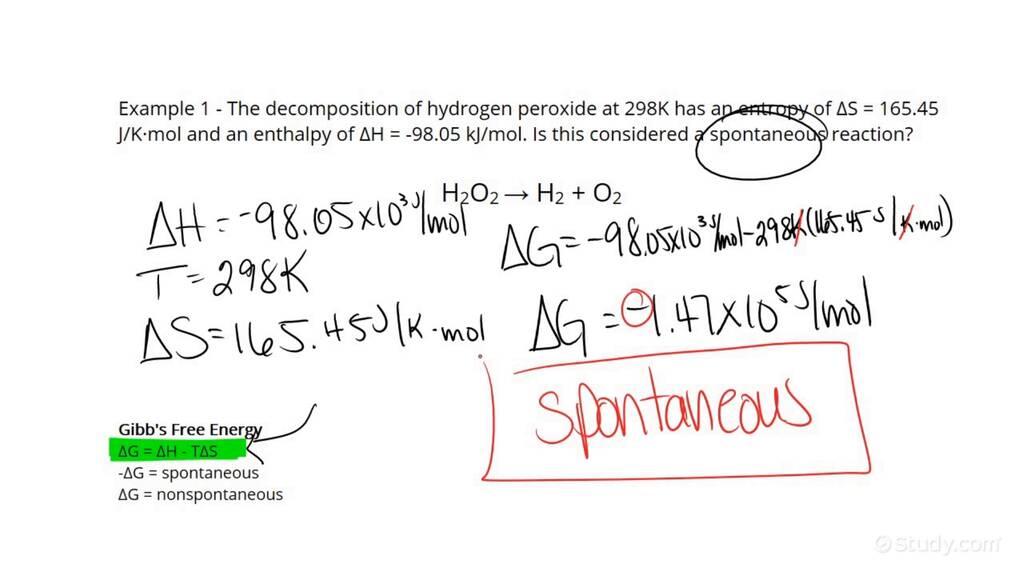 Example 1 - The decomposition of hydrogen peroxide at 298K has an entropy of ΔS = 165.45
J/K·mol and an enthalpy of ΔH = -98.05 kJ/mol. Is this considered a spontaneous reaction?
H₂O₂ → H₂ + O₂
ΔH = -98.05x10³ J/mol
T = 298K
ΔS = 165.45J/K·mol
ΔG = -98.05x10³ J/mol - 298K(165.45 J/K·mol)
ΔG = -1.47x10⁵ J/mol
spontaneous
Gibb's Free Energy
ΔG = ΔH - TΔS
-ΔG = spontaneous
ΔG = nonspontaneous
©Study.com